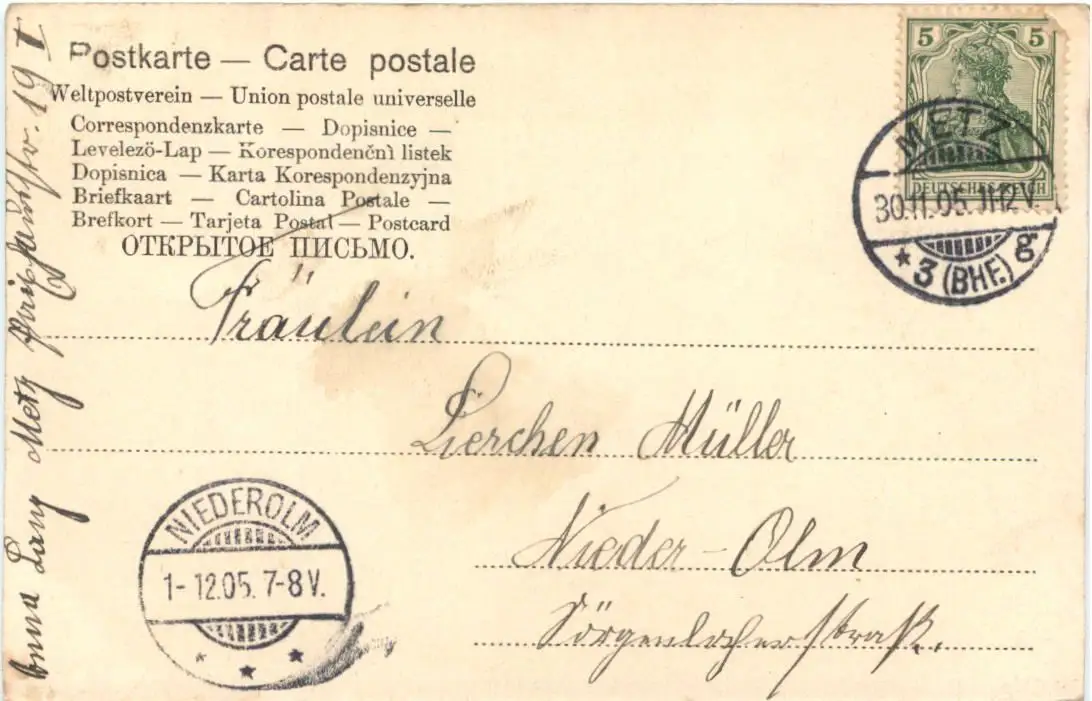 Postkarte — Carte postale
Weltpostverein — Union postale universelle
Correspondenzkarte — Dopisnice —
Levelező-Lap — Korespondenčni listek
Dopisnica — Karta Korespondenzyjna
Briefkaart — Cartolina Postale —
Brefkort — Tarjeta Postal — Postcard
ОТКРЫТОЕ ПИСЬМО.
5 5
DEUTSCHES REICH
METZ
30.11.05. 1112V.
* 3 (BHF.) g
Fräulein
Lierchen Müller
Nieder-Olm
Sörgenlocherstraß.
NIEDEROLM
1-12.05. 7-8V.
* * *
Anna Lang Metz 19 I